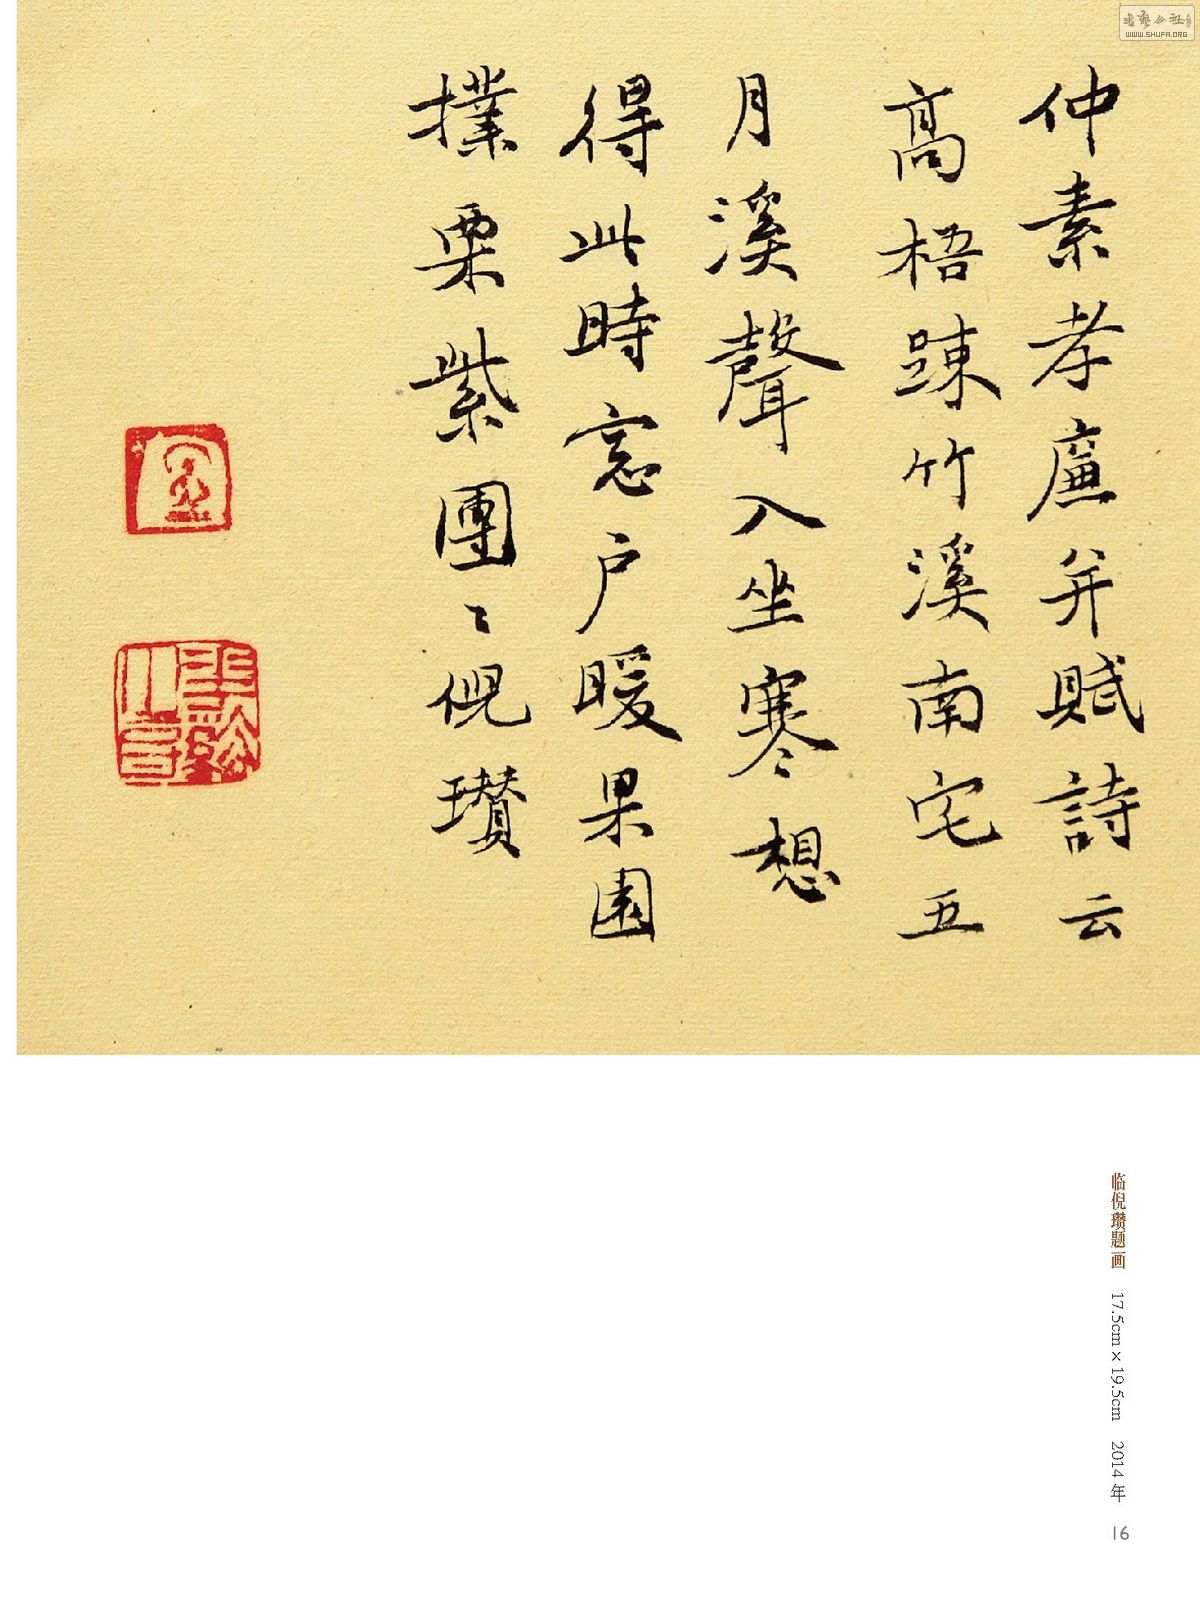 仲素孝廉并賦詩云
高梧踈竹溪南宅五
月溪聲入坐寒想
得此時窓户暖果園
撲栗紫團〻倪瓚
临倪瓒题画 17.5cm×19.5cm 2014年
16
WWW.SHUFA.ORG